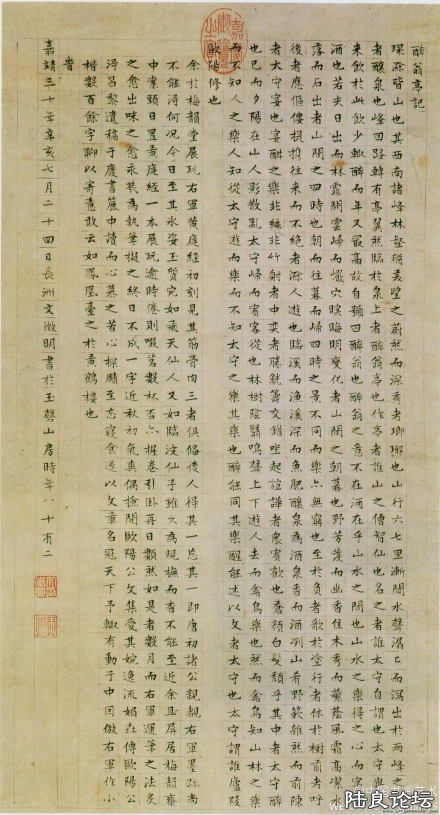 醉翁亭記
環滁皆山也其西南諸峰林壑尤美望之蔚然而深秀者瑯琊也山行六七里漸聞水聲潺々而瀉出於兩峰之
者釀泉也峰回路轉有亭翼然臨於泉上者醉翁亭也作亭者誰山之僧智仙也名之者誰太守自謂也太守與
來飲於此飲少輒醉而年又最高故自號曰醉翁也醉翁之意不在酒在乎山水之間也山水之樂得之心而寓
酒也若夫日出而林霏開雲歸而巖穴暝晦明變化者山間之朝暮也野芳發而幽香佳木秀而繁蔭風霜高潔水
落而石出者山間之四時也朝而往暮而歸四時之景不同而樂亦無窮也至於負者歌於塗行者休於樹前者呼
後者應傴僂提攜往來而不絕者滁人遊也臨溪而漁溪深而魚肥釀泉為酒泉香而酒冽山肴野蔌雜然而前陳
者太守宴也宴酣之樂非絲非竹射者中奕者勝觥籌交錯坐起諠譁者衆賓歡也蒼顏白髮頹乎其中者太守醉
也已而夕陽在山人影散亂太守歸而賓客從也林樹陰翳鳴聲上下遊人去而禽鳥樂也然而禽鳥知山林之樂
而不知人之樂人知從太守遊而樂而不知太守之樂其樂也醉能同其樂醒能述以文者太守也太守謂誰廬陵
歐陽修也
余於梅韻堂展玩右軍黃庭經初刻見其筋骨肉三者俱備後人得其一忘其一即唐初諸公親覩右軍墨跡尚
不能得何況今日至其冰姿玉質宛如飛天仙人又如臨波仙子雖久為規撫而杳不能至近余且屏居梅韻齋
中案頭日置黃庭經一本展玩逾時倦則啜茗數杯否亦握卷引臥再日類然如是者數月而右軍運筆之法炙
之愈出味之愈永裝為執筆擬之終日不成一字近秋初氣爽偶撿閱歐陽公文集愛其婉逸流媚社傳歐陽公
得昌黎遺稿于廢書簏中讀而心慕之苦心探賾至忘寢食遂以文章名冠天下予輙有動于中因倣右軍作小
楷數百餘字聊以寄意敢云如鳳凰臺之於黃鶴樓也
旹
嘉靖三十年辛亥七月二十四日長洲文徵明書於玉磬山房時年八十有二
陆良论坛